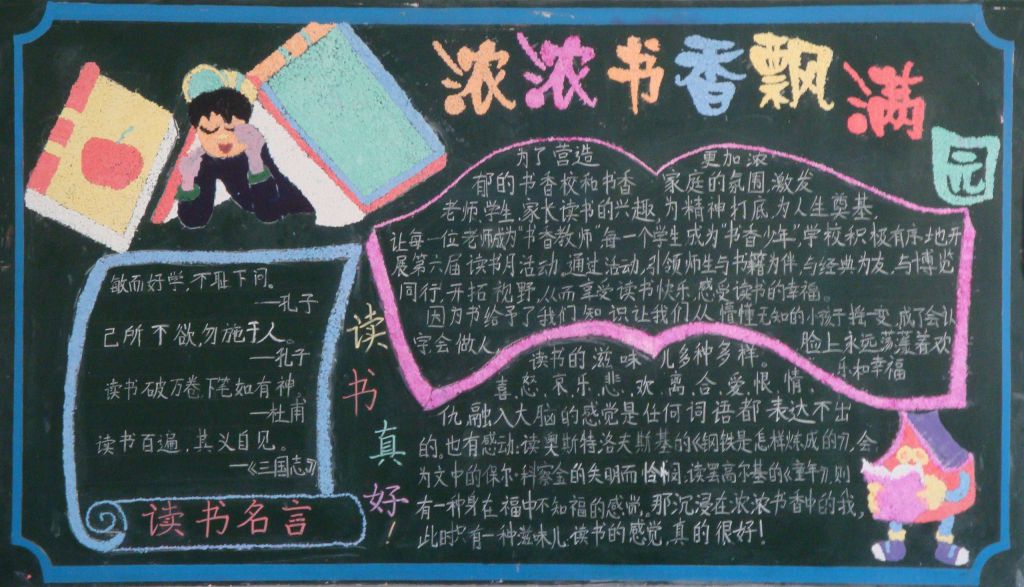 浓浓书香飘满园
敏而好学,不耻下问。
—孔子
己所不欲,勿施于人。
—孔子
读书破万卷下笔如有神。
—杜甫
读书百遍,其义自见。
—《三国志》
读书名言
读书真好!
为了营造 更加浓
郁的书香校和书香 家庭的氛围,激发
老师,学生,家长读书的兴趣,为精神打底,为人生奠基,
让每一位老师成为"书香教师",每一个学生成为"书香少年",学校积极有序地开
展第六届读书月活动,通过活动,引领师生与书籍为伴,与经典为友,与博览
同行,开拓视野,从而享受读书快乐,感受读书的幸福。
因为书给予了我们知识让我们从懵懂无知的小孩子摇一变,成了会认
字,会做人, 脸上永远荡漾着欢
读书的滋味儿多种多样。 乐和幸福
喜、怒、哀、乐、悲、欢、离、合、爱、恨、情、
仇,融入大脑的感觉是任何词语都表达不出
的。也有感动,读奥斯特洛夫斯基的《钢铁是怎样炼成的》,会
为文中的保尔·柯察金的失明而 读罢高尔基的《童年》,则
有一种身在福中不知福的感觉,那沉浸在浓浓书香中的我,
此时只有一种滋味儿读书的感觉,真的很好!